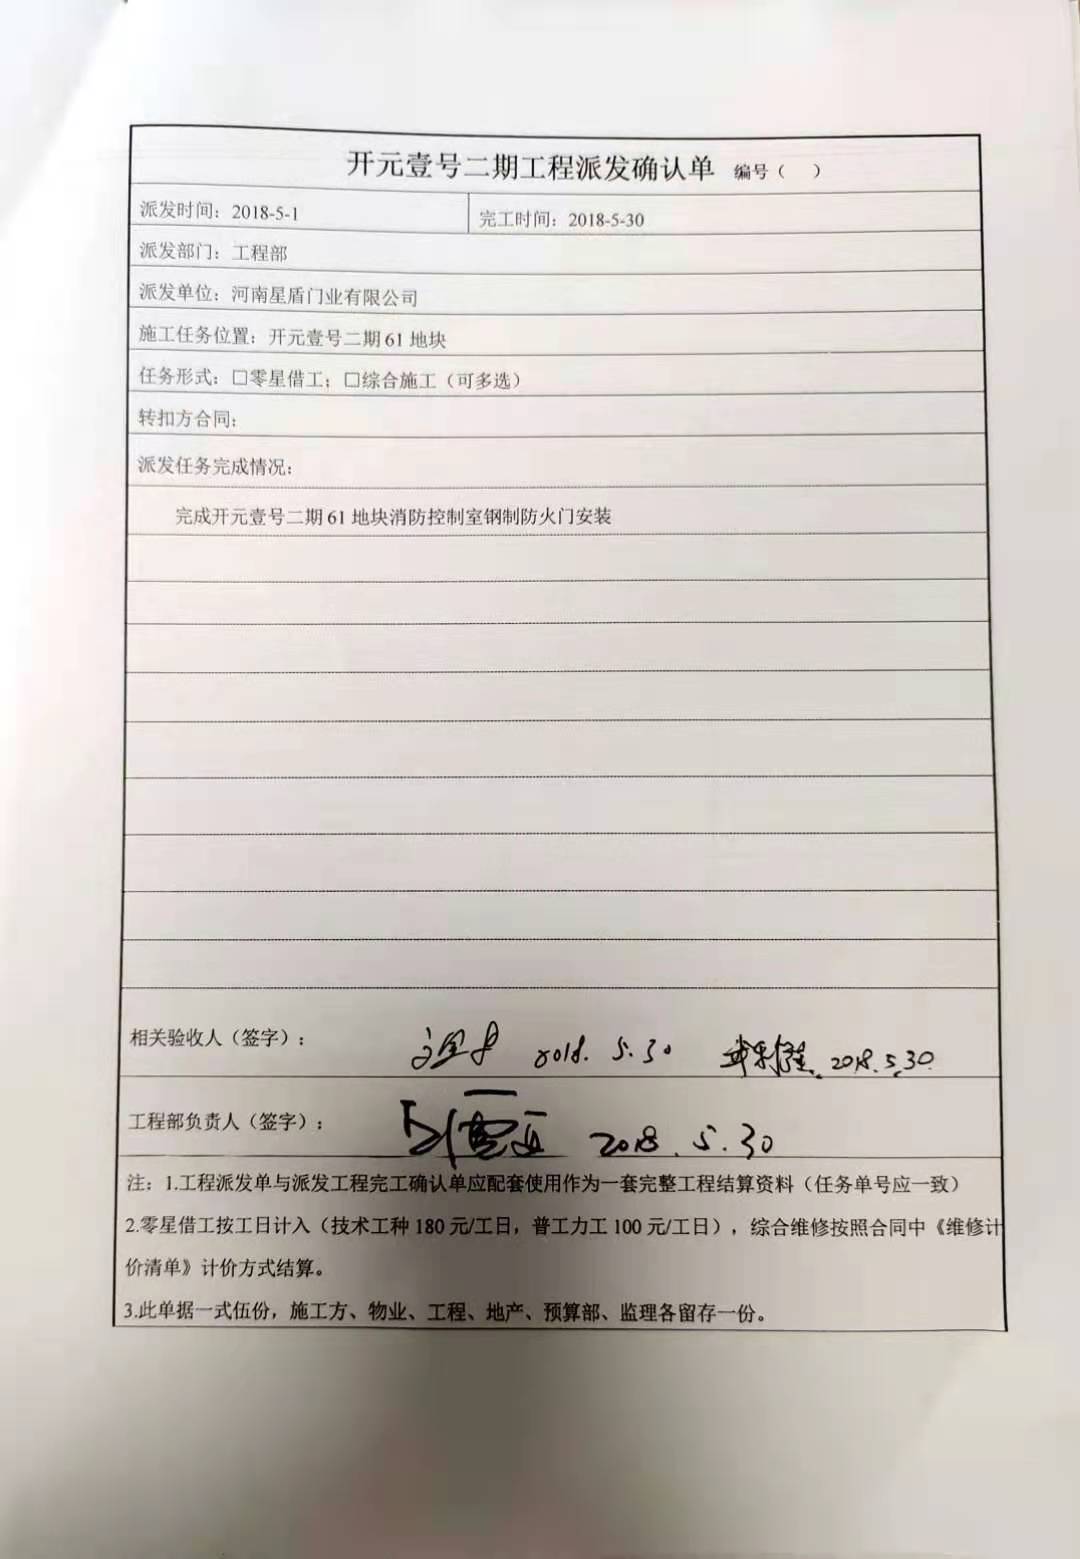 开元壹号二期工程派发确认单 编号（ ）
派发时间：2018-5-1
完工时间：2018-5-30
派发部门：工程部
派发单位：河南星盾门业有限公司
施工任务位置：开元壹号二期61地块
任务形式：□零星借工；□综合施工（可多选）
转扣方合同：
派发任务完成情况：
完成开元壹号二期61地块消防控制室钢制防火门安装
相关验收人（签字）： 2018. 5.30 2018.5.30
工程部负责人（签字）： 2018.5.30
注：1.工程派发单与派发工程完工确认单应配套使用作为一套完整工程结算资料（任务单号应一致）
2.零星借工按工日计入（技术工种180元/工日，普工力工100元/工日），综合维修按照合同中《维修计
价清单》计价方式结算。
3.此单据一式伍份，施工方、物业、工程、地产、预算部、监理各留存一份。